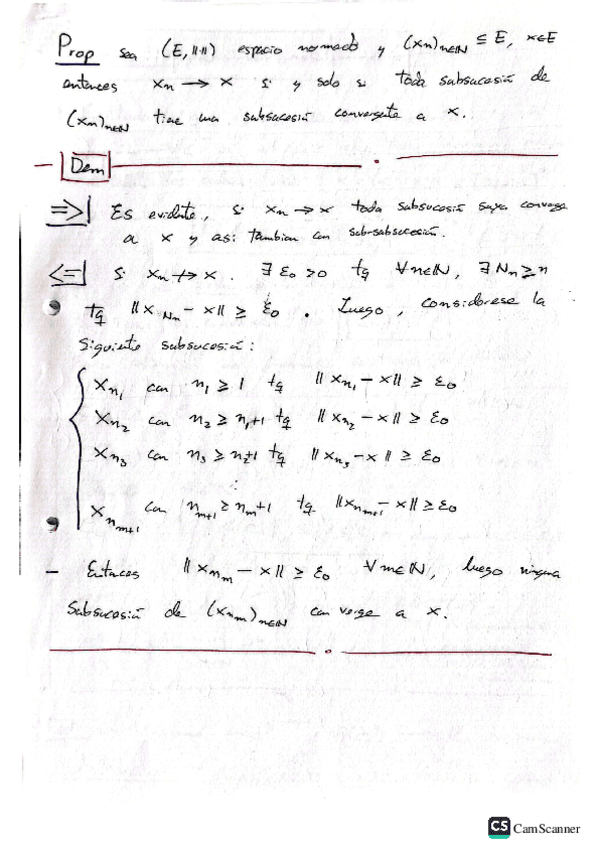 Prop sea (E, ||·||) espacio normado y (xn)n∈ℕ ⊆ E, x∈E
entonces xn → x si y solo si toda subsucesión de
(xn)n∈ℕ tiene una subsucesión convergente a x.
Dem
=>| Es evidente, si xn → x toda subsucesión suya converge
a x y así también con sub-subsucesión.
<=| Si xn ↛ x. ∃ ε0 > 0 tq ∀n∈ℕ, ∃ Nn ≥ n
tq ||x Nn − x|| ≥ ε0. Luego, considérese la
siguiente subsucesión:
xn1 con n1 ≥ 1 tq ||xn1 − x|| ≥ ε0
xn2 con n2 ≥ n1+1 tq ||xn2 − x|| ≥ ε0
xn3 con n3 ≥ n2+1 tq ||xn3 − x|| ≥ ε0
⋮
xnm+1 con nm+1 ≥ nm+1 tq ||xnm+1 − x|| ≥ ε0
− Entonces ||xnm − x|| ≥ ε0 ∀m∈ℕ, luego ninguna
subsucesión de (xnm)n∈ℕ converge a x.
CS CamScanner